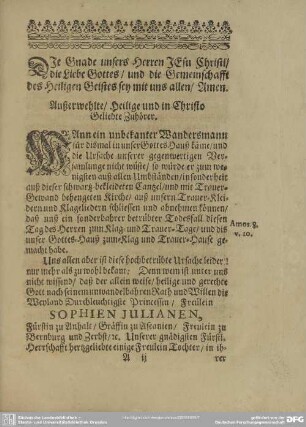 DJe Gnade unsers Herren JEsu Christi/
die Liebe Gottes/ und die Gemeinschafft
des Heiligen Geistes sey mit uns allen/ Amen.
Außerwehlte/ Heilige und in Christo
Geliebte Zuhörer.
WAnn ein unbekanter Wandersmann
für dismal in unser Gottes-Hauß käme/ und
die Ursache unserer gegenwertigen Ver-
samlunge nicht wüste/ so würde er zum we-
nigsten auß allen Umbständen/ in sonderheit
auß dieser schwartz-bekleideten Cantzel/ und mit Trauer-
Gewand behengeten Kirche/ auß unsern Trauer-Klei-
dern und Klageliedern schliessen und abnehmen können/
daß uns ein sonderbahrer betrübter Todesfall diesen
Tag des Herren zum Klag-und Trauer-Tage/ und diß
unser Gottes-Hauß zum Klag-und Trauer-Hause ge-
macht habe.
Amos 8.
v. 10.
Uns allen aber ist diese hochbetrübte Ursache leider!
nur mehr als zu wohl bekant; Denn wem ist unter uns
nicht wissend/ daß der allein weise/ heilige und gerechte
Gott nach seinem unwandelbahren Rath und Willen die
Weyland Durchleuchtigste Princessen/ Freulein
SOPHIEN JULIANEN,
Fürstin zu Anhalt/ Gräffin zu Ascanien/ Freulein zu
Bernburg und Zerbst/ ec. Unserer gnädigsten Fürstl.
Herrschafft hertzgeliebte einige Freulein Tochter/ in ih-
A ij
rer